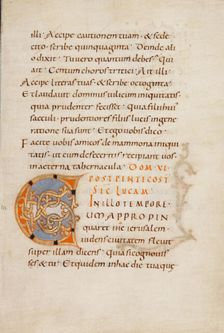 illi. Accipe cautionem tuam. & sede
cito. scribe quinquaginta. Deinde alii
o dixit. Tu vero quantum debes. Qui
ait. Centum choros tritici. Ait illi.
Accipe litteras tuas. & scribe octoginta.
Et laudavit dominus vilicum iniquitatis
quia prudenter fecisset. Quia filii huius
saeculi prudentiores filiis lucis in gene
ratione sua sunt. Et ego vobis dico
Facite vobis amicos de mammona iniqui
tatis. ut cum defeceritis recipiant vos
in aeterna tabernacula. DOM XI
POST PENTECOST
SEC LUCAM
IN ILLO TEMPORE
CUM APPROPIN
quaret ihs ierusalem
videns civitatem flevit
super illam dicens. Quia si cognovis
ses & tu. Et quidem in hac die tua que